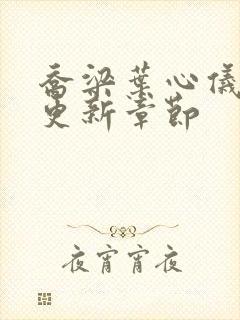 乔梁叶心仪
更新章节
夜宵宵夜